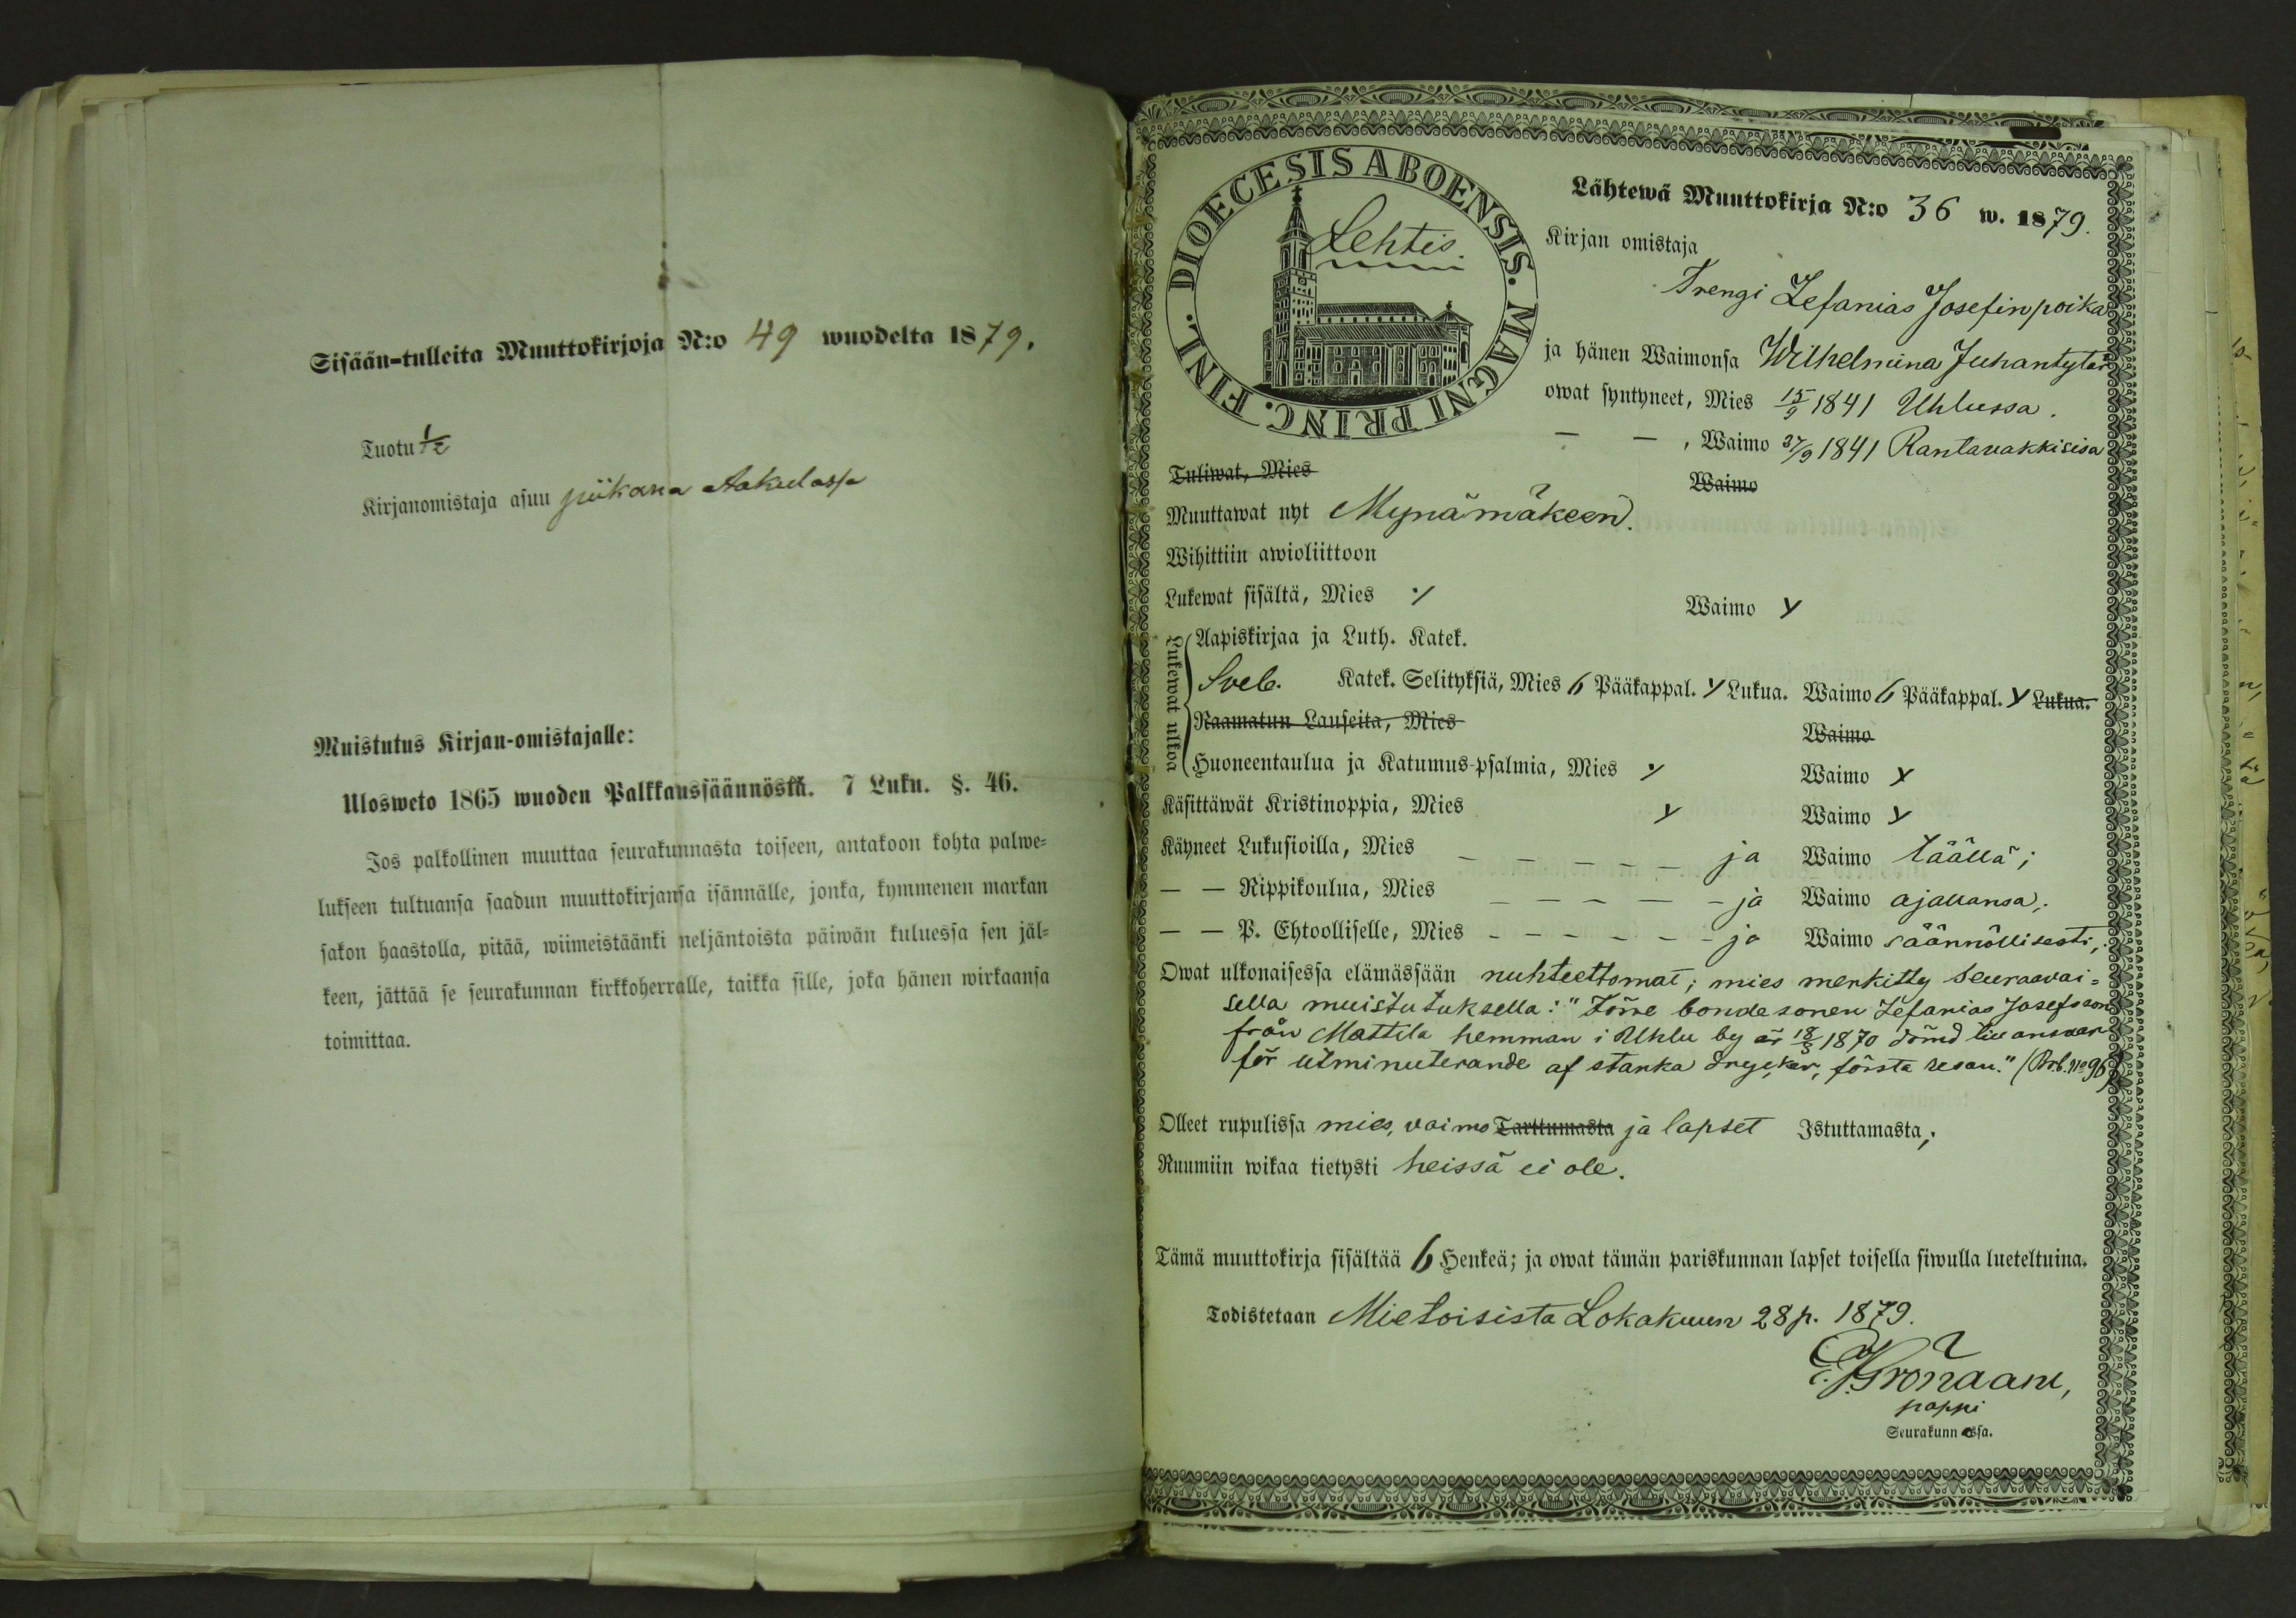 Sisään-tulleita Muuttokirjoja N:o 49 wuodelta 1879.
Tuotu 1/2
Kirjanomistaja asuu piikana Aakulassa
Muistutus Kirjan-omistajalle:
Ulosweto 1865 wuoden Palkkaussäännöstä. 7 Luku. §. 46.
Jos palkollinen muuttaa seurakunnasta toiseen, antakoon kohta palwe=
lukseen tultuansa saadun muuttokirjansa isännälle, jonka, kymmenen markan
sakon haastolla, pitää, wiimeistäänki neljäntoista päiwän kuluessa sen jäl=
keen, jättää se seurakunnan kirkkoherralle, taikka sille, joka hänen wirkaansa
toimittaa.
DIOECESIS ABOENSIS. MAGNI PRINC. FINL.
Lehtis.
Lähtewä Muuttokirja N:o 36 w. 1879.
Kirjan omistaja
Trengi Zefanias Josefinpoika
ja hänen Waimonsa Wilhelmina Juhantytär
owat syntyneet, Mies 15/9 1841 Uhlussa.
— — , Waimo 27/9 1841 Rantavakkisisa
Tuliwat, Mies Waimo
Muuttawat nyt Mynämäkeen.
Wihittiin awioliittoon
Lukewat sisältä, Mies y Waimo y
Lukewat ulkoa
Aapiskirjaa ja Luth. Katek.
Sveb. Katek. Selityksiä, Mies 6 Pääkappal. y Lukua. Waimo 6 Pääkappal. y Lukua.
Raamatun Lauseita, Mies Waimo
Huoneentaulua ja Katumus-psalmia, Mies y Waimo y
Käsittäwät Kristinoppia, Mies y Waimo y
Käyneet Lukusioilla, Mies — — — — — — ja Waimo täällä;
— — Rippikoulua, Mies — — — — — — ja Waimo ajallansa;
— — P. Ehtoolliselle, Mies — — — — — — ja Waimo säännöllisesti;
Owat ulkonaisessa elämässään nuhteettomat; mies merkitty seuraavai=
sella muistutuksella: "Förre bondesonen Zefanias Josefsson
från Mattila hemman i Uhlu by är 18/3 1870 dömd till ansvar
för utminuterande af starka drycker, första resan." (Br.b. No 96)
Olleet rupulissa mies, vaimo Tarttumasta ja lapset Istuttamasta;
Ruumiin wikaa tietysti heissä ei ole.
Tämä muuttokirja sisältää 6 Henkeä; ja owat tämän pariskunnan lapset toisella siwulla lueteltuina.
Todistetaan Mietoisista Lokakuun 28 p. 1879.
pappi
Seurakunnassa.